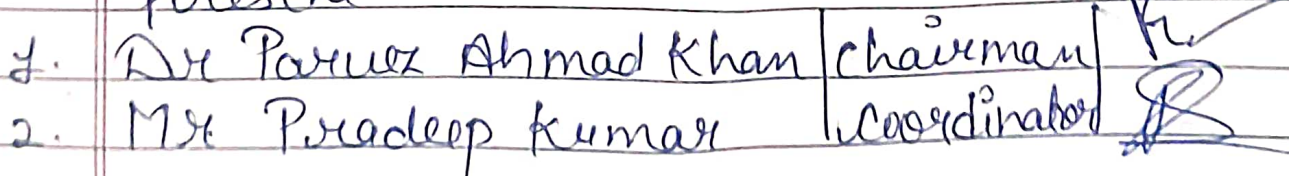 1. Dr Parvez Ahmad Khan chairman
2. Mr. Pradeep Kumar coordinator